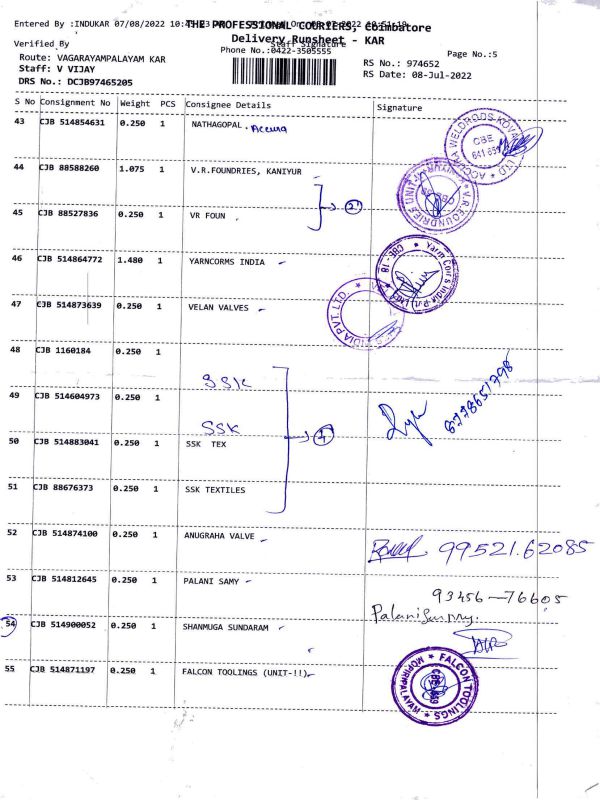 Entered By :INDUKAR 07/08/2022
THE PROFESSIONAL COURIERS, Coimbatore
Delivery Runsheet - KAR
Verified By
Staff Signature
Phone No.:0422-3505555
Page No.:5
Route: VAGARAYAMPALAYAM KAR
RS No.: 974652
Staff: V VIJAY
RS Date: 08-Jul-2022
DRS No.: DCJB97465205
S No Consignment No Weight PCS Consignee Details Signature
43 CJB 514854631 0.250 1 NATHAGOPAL . Accura
44 CJB 88588260 1.075 1 V.R.FOUNDRIES, KANIYUR
2
45 CJB 88527836 0.250 1 VR FOUN
46 CJB 514864772 1.480 1 YARNCORMS INDIA
47 CJB 514873639 0.250 1 VELAN VALVES
48 CJB 1160184 0.250 1
SSK
49 CJB 514604973 0.250 1
SSK
50 CJB 514883041 0.250 1 SSK TEX
4
51 CJB 88676373 0.250 1 SSK TEXTILES
52 CJB 514874100 0.250 1 ANUGRAHA VALVE
99521.62085
53 CJB 514812645 0.250 1 PALANI SAMY
93456-76605
Palanisamy.
54 CJB 514900052 0.250 1 SHANMUGA SUNDARAM
55 CJB 514871197 0.250 1 FALCON TOOLINGS (UNIT-!!)
FALCON TOOLINGS
MOPIRIPALAYAM